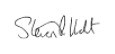 Steven R Holt